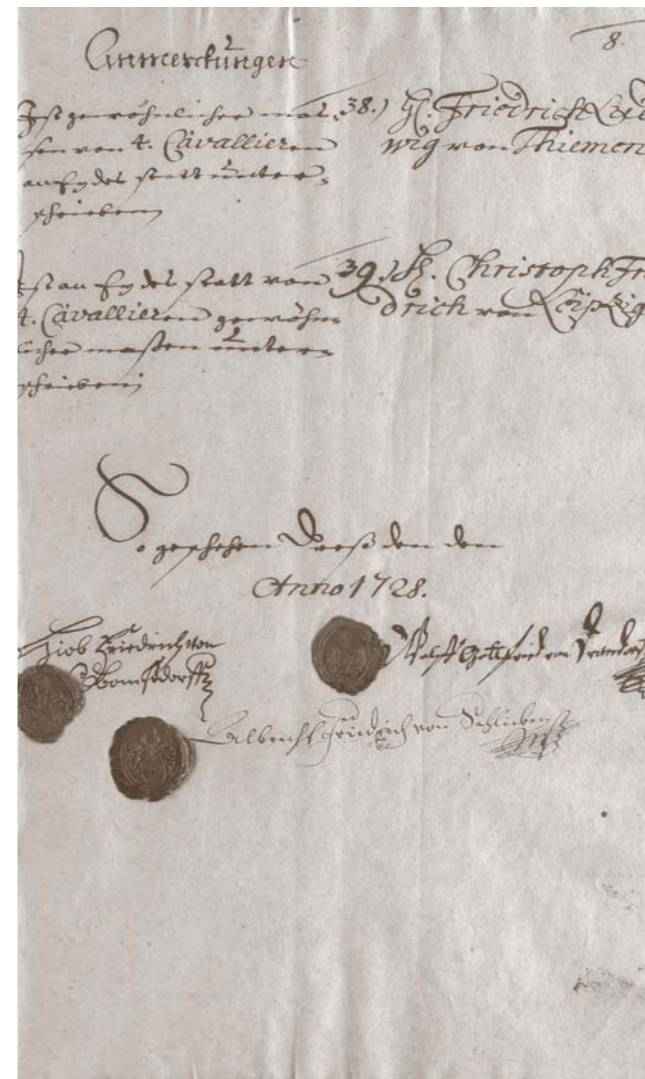 8.
Anmerckungen
Ist gewöhnlicher mas-
sen von 4. Cavallieren
an Eydes statt unter-
schrieben
38.) H. Friedrich Lud
wig von Thiemen
Ist an Eydes statt von
4. Cavallieren gewöhn-
licher maßen unter-
schrieben
39.) H. Christoph Frie
drich von Leipzig
So geschehen Dreßden den
Anno 1728.
Hiob Friedrich von
Bomsdorff
Gottfried von
Albrecht Friedrich von Schlieben